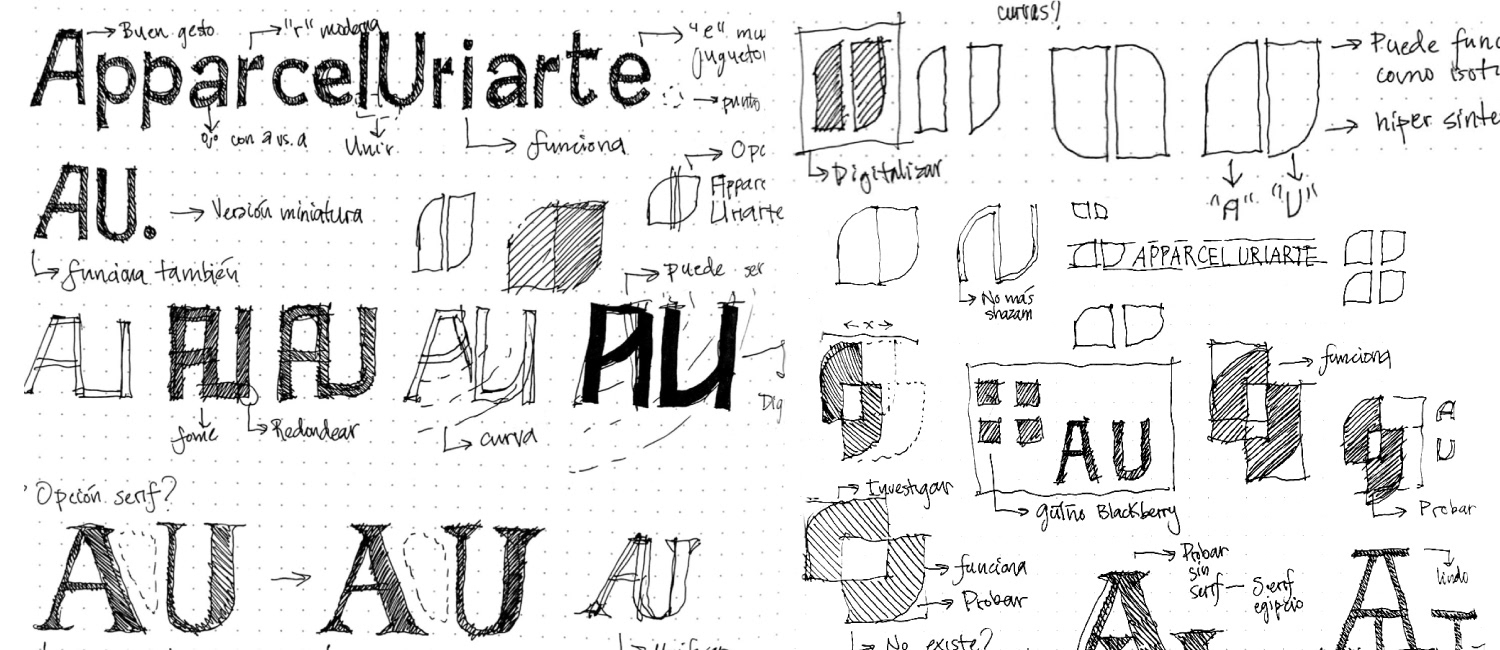 Buen gesto
"r" moderna
"e" mu
juguetor
ApparcelUriarte
punto
Ojo con a vs. a
Unir
funciona
AU.
Versión miniatura
funciona también
Opc
Apparc
Uriarte
puede ser
AU AU AU AU AU
fome
Redondear
curva
Dig
Opción serif?
AU AU AU
curvas?
Digitalizar
Puede func
como isoti
hiper sinte
"A" "U"
No más
shazam
APPARCEL URIARTE
x
funciona
A
U
AU
guiño Blackberry
Probar
Investigar
funciona
Probar
No existe?
Probar
sin
serif
Serif
egipcio
A
A
lindo